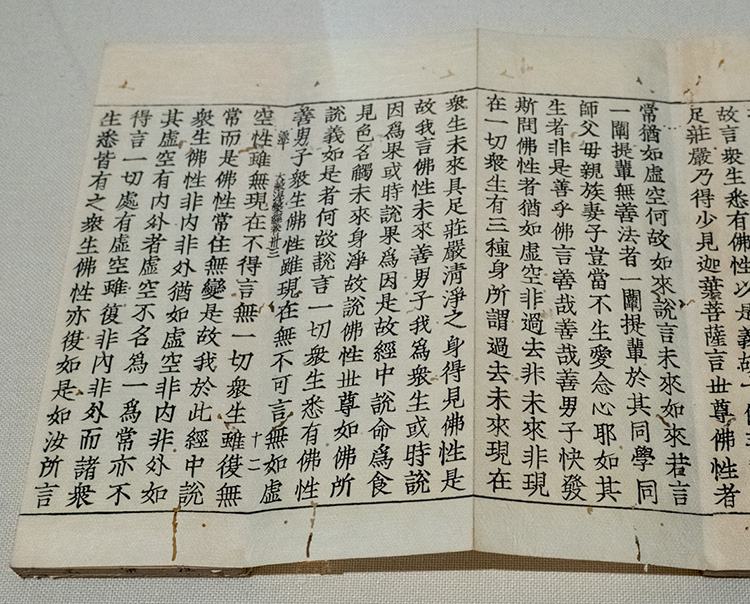 故言衆生佛性以是義故
足莊嚴乃得少見迦葉菩薩言世尊佛性者
常猶如虛空何故如來說言未來如來若言
一闡提輩無善法者一闡提輩於其同學同
師父母親族妻子豈當不生愛念心耶如其
生者非是善乎佛言善哉善哉善男子快發
斯問佛性者猶如虛空非過去非未來非現
在一切衆生有三種身所謂過去未來現在
衆生未來具足莊嚴清淨之身得見佛性是
故我言佛性未來善男子我爲衆生或時說
因爲果或時說果爲因是故經中說命爲食
見色名觸未來身淨故說佛性世尊如佛所
說義如是者何故說言一切衆生悉有佛性
善男子衆生佛性雖現在無不可言無如虛
大般涅槃經卷卅三 十二
空性雖無現在不得言無一切衆生雖復無
常而是佛性常住無變是故我於此經中說
衆生佛性非內非外猶如虛空非內非外如
其虛空有內外者虛空不名爲一爲常亦不
得言一切處有虛空雖復非內非外而諸衆
生悉皆有之衆生佛性亦復如是如汝所言